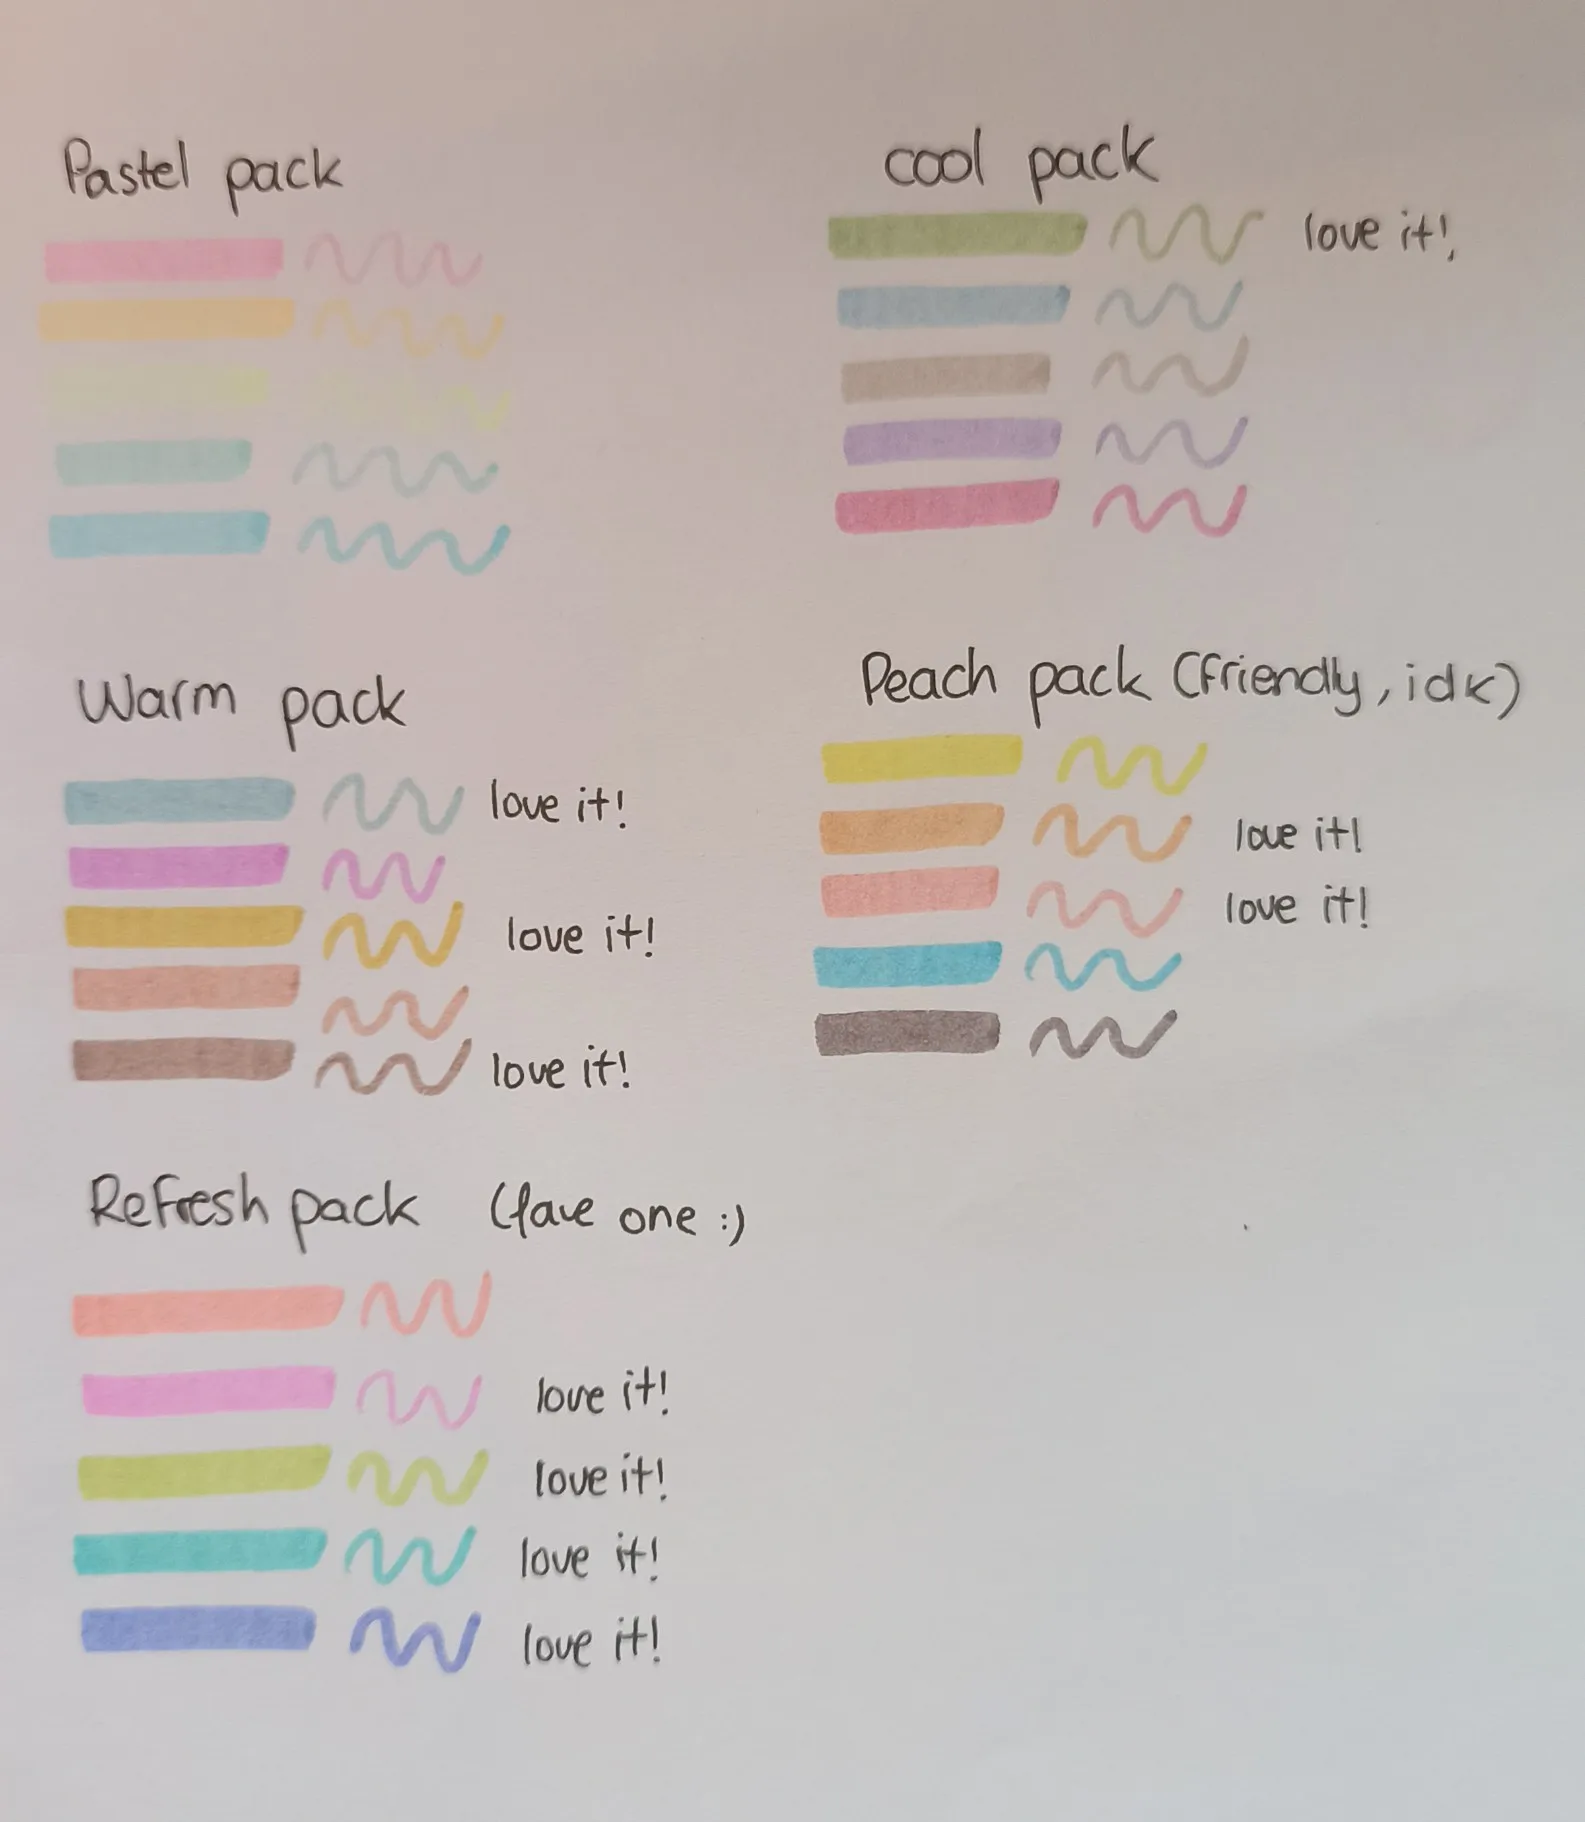 Pastel pack
cool pack
love it!
Warm pack
love it!
love it!
love it!
Peach pack (friendly, idk)
love it!
love it!
Refresh pack (fave one :)
love it!
love it!
love it!
love it!